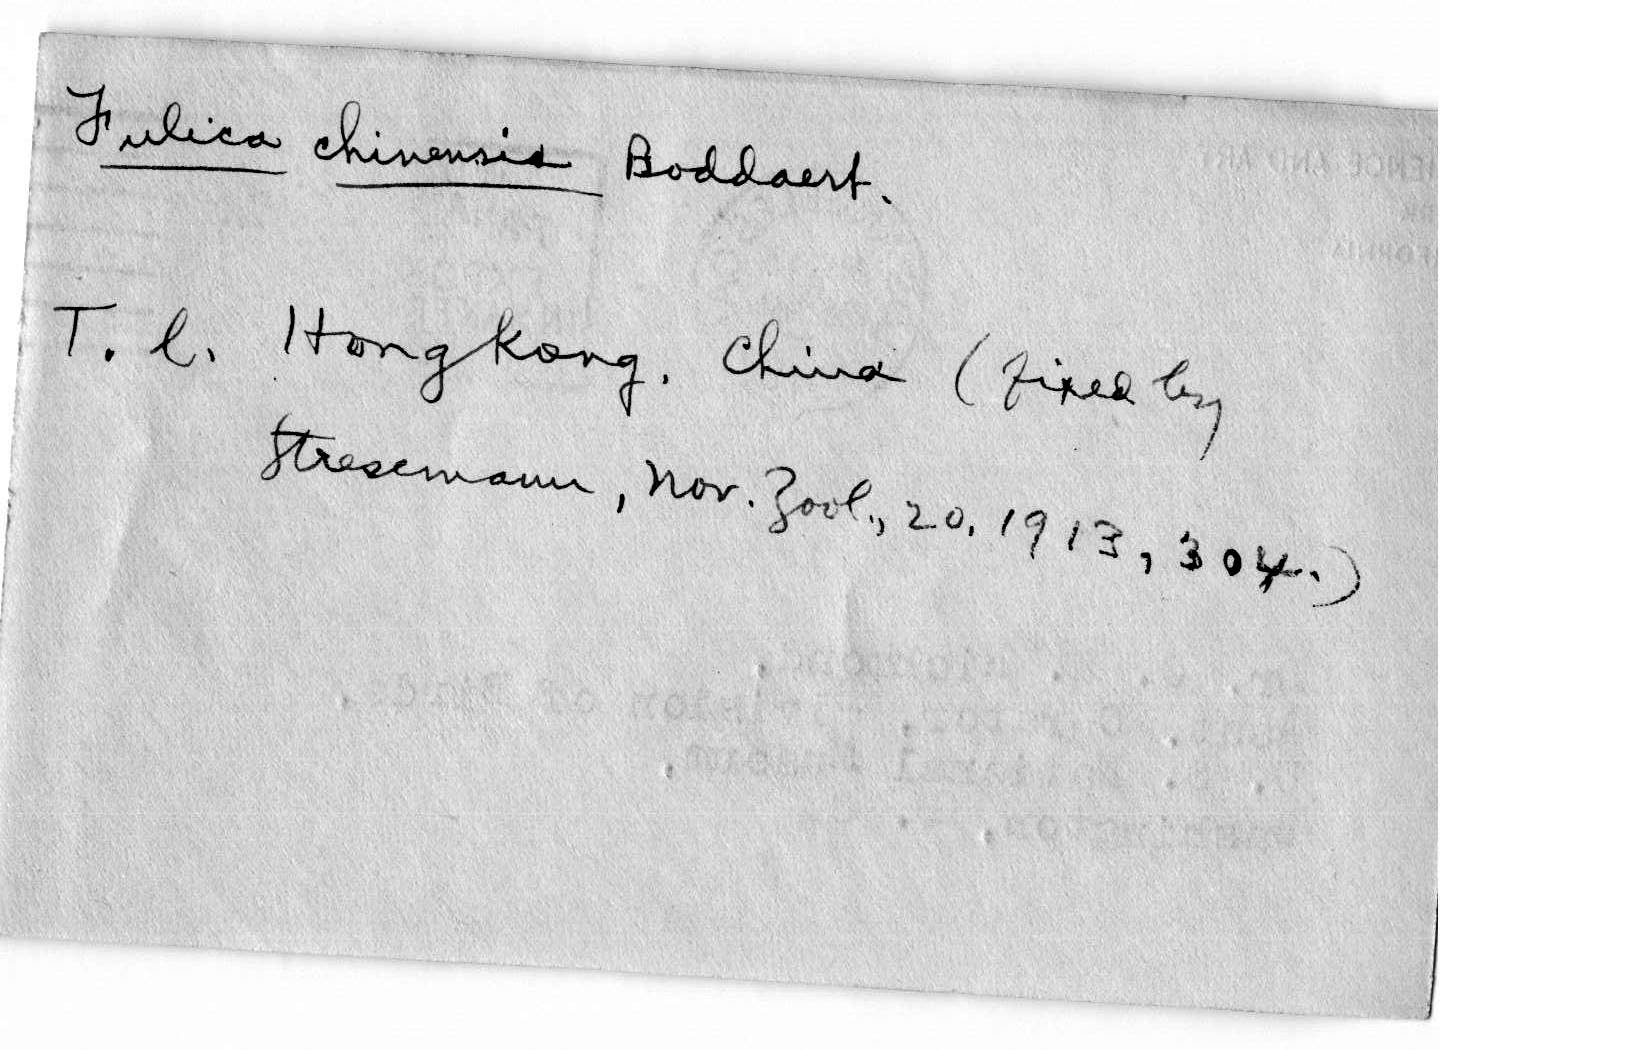 Fulica chinensis Boddaert.
T. l. Hongkong, China (fixed by
Stresemann, Nov. Zool., 20, 1913, 304.)